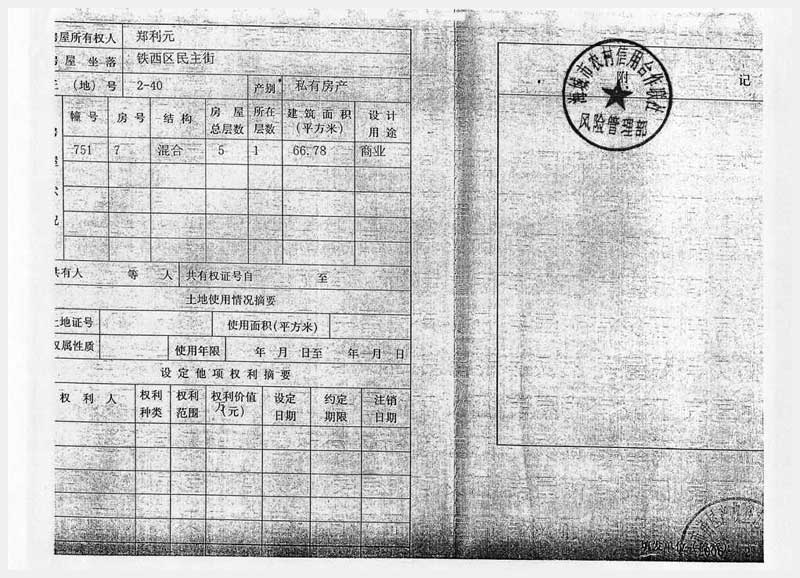 房屋所有权人 郑利元
房屋坐落 铁西区民主街
(地)号 2-40 产别 私有房产
幢号 房号 结构 房屋总层数 所在层数 建筑面积(平方米) 设计用途
751 7 混合 5 1 66.78 商业
共有人 等 人 共有权证号自 至
土地使用情况摘要
土地证号 使用面积(平方米)
权属性质 使用年限 年 月 日至 年 月 日
设定他项权利摘要
权利人 权利种类 权利范围 权利价值(万元) 设定日期 约定期限 注销日期
附 记
市农村信用合作联社
风险管理部